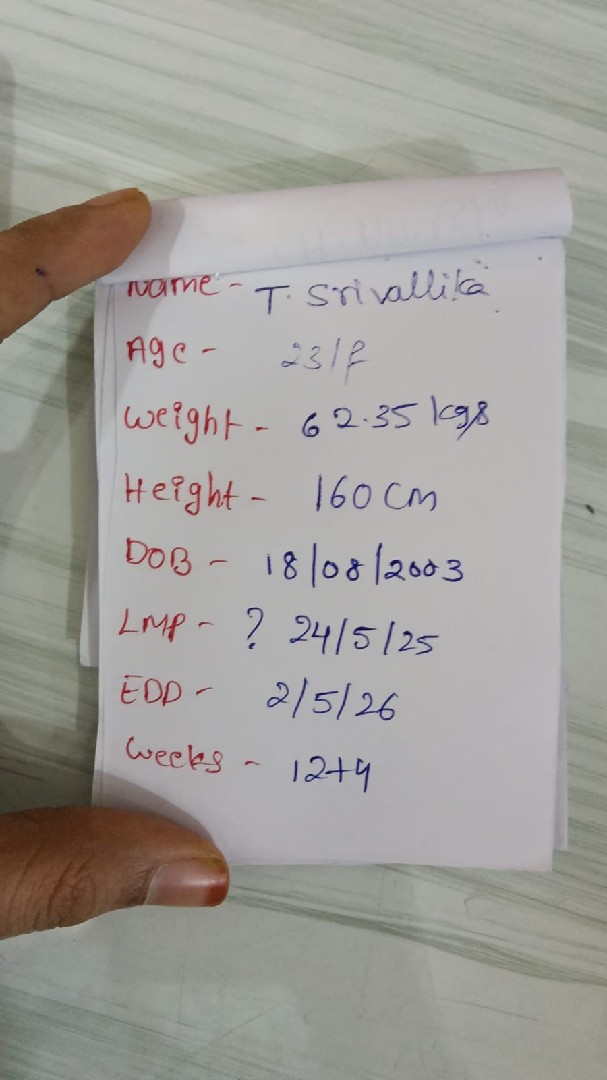 Name - T. Srivallika
Age - 23/f
Weight - 62.35 kgs
Height - 160 cm
DOB - 18/08/2003
LMP - ? 24/5/25
EDD - 2/5/26
Weeks - 12+4